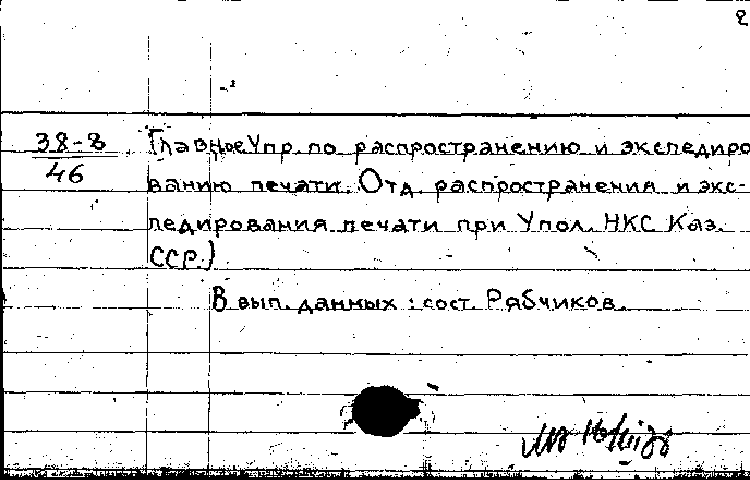 2
38-8
46
[Главное Упр. по распространению и экспедиро
ванию печати. Отд. распространения и экс-
педирования печати при Упол. НКС Каз.
ССР.]
В вып. данных: сост. Рябчиков.